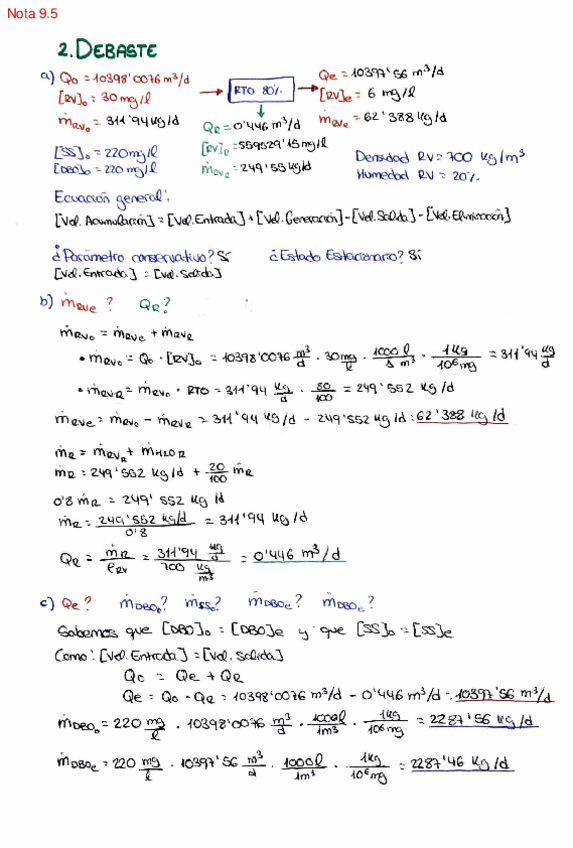 Nota 9.5
2. DEBASTE
a) Qo = 10398'0076 m³/d
[RV]o = 30 mg/l
ṁRVo = 311'94 kg/d
RTO 80%
Qe = 10397'56 m³/d
[RV]e = 6 mg/l
ṁRVe = 62'388 kg/d
QR = 0'446 m³/d
[RV]R = 559529'15 mg/l
ṁRVR = 249'55 kg/d
[SS]o = 220 mg/l
[DBO]o = 220 mg/l
Densidad RV = 700 kg/m³
Humedad RV = 20%
Ecuación general:
[Vel. Acumulación] = [Vel. Entrada] + [Vel. Generación] - [Vel. Salida] - [Vel. Eliminación]
¿Parámetro conservativo? Sí ¿Estado Estacionario? Sí
[Vel. Entrada] = [Vel. Salida]
b) ṁRVe ? QR?
ṁRVo = ṁRVe + ṁRVR
• ṁRVo = Qo · [RV]o = 10398'0076 m³/d · 30 mg/l · 1000 l/1 m³ · 1 kg/10⁶ mg = 311'94 kg/d
• ṁRVR = ṁRVo · RTO = 311'94 kg/d · 80/100 = 249'552 kg/d
ṁRVe = ṁRVo - ṁRVR = 311'94 kg/d - 249'552 kg/d = 62'388 kg/d
ṁR = ṁRVR + ṁH2O R
ṁR = 249'552 kg/d + 20/100 ṁR
0'8 ṁR = 249'552 kg/d
ṁR = 249'552 kg/d / 0'8 = 311'94 kg/d
QR = ṁR/ρRV = 311'94 kg/d / 700 kg/m³ = 0'446 m³/d
c) Qe? ṁDBOo? ṁSSo? ṁDBOe? ṁDBOe?
Sabemos que [DBO]o = [DBO]e y que [SS]o = [SS]e
Como: [Vel. Entrada] = [Vel. Salida]
Qo = Qe + QR
Qe = Qo - QR = 10398'0076 m³/d - 0'446 m³/d = 10397'56 m³/d
ṁDBOo = 220 mg/l · 10398'0076 m³/d · 1000 l/1m³ · 1kg/10⁶ mg = 2287'56 kg/d
ṁDBOe = 220 mg/l · 10397'56 m³/d · 1000 l/1m³ · 1kg/10⁶ mg = 2287'46 kg/d